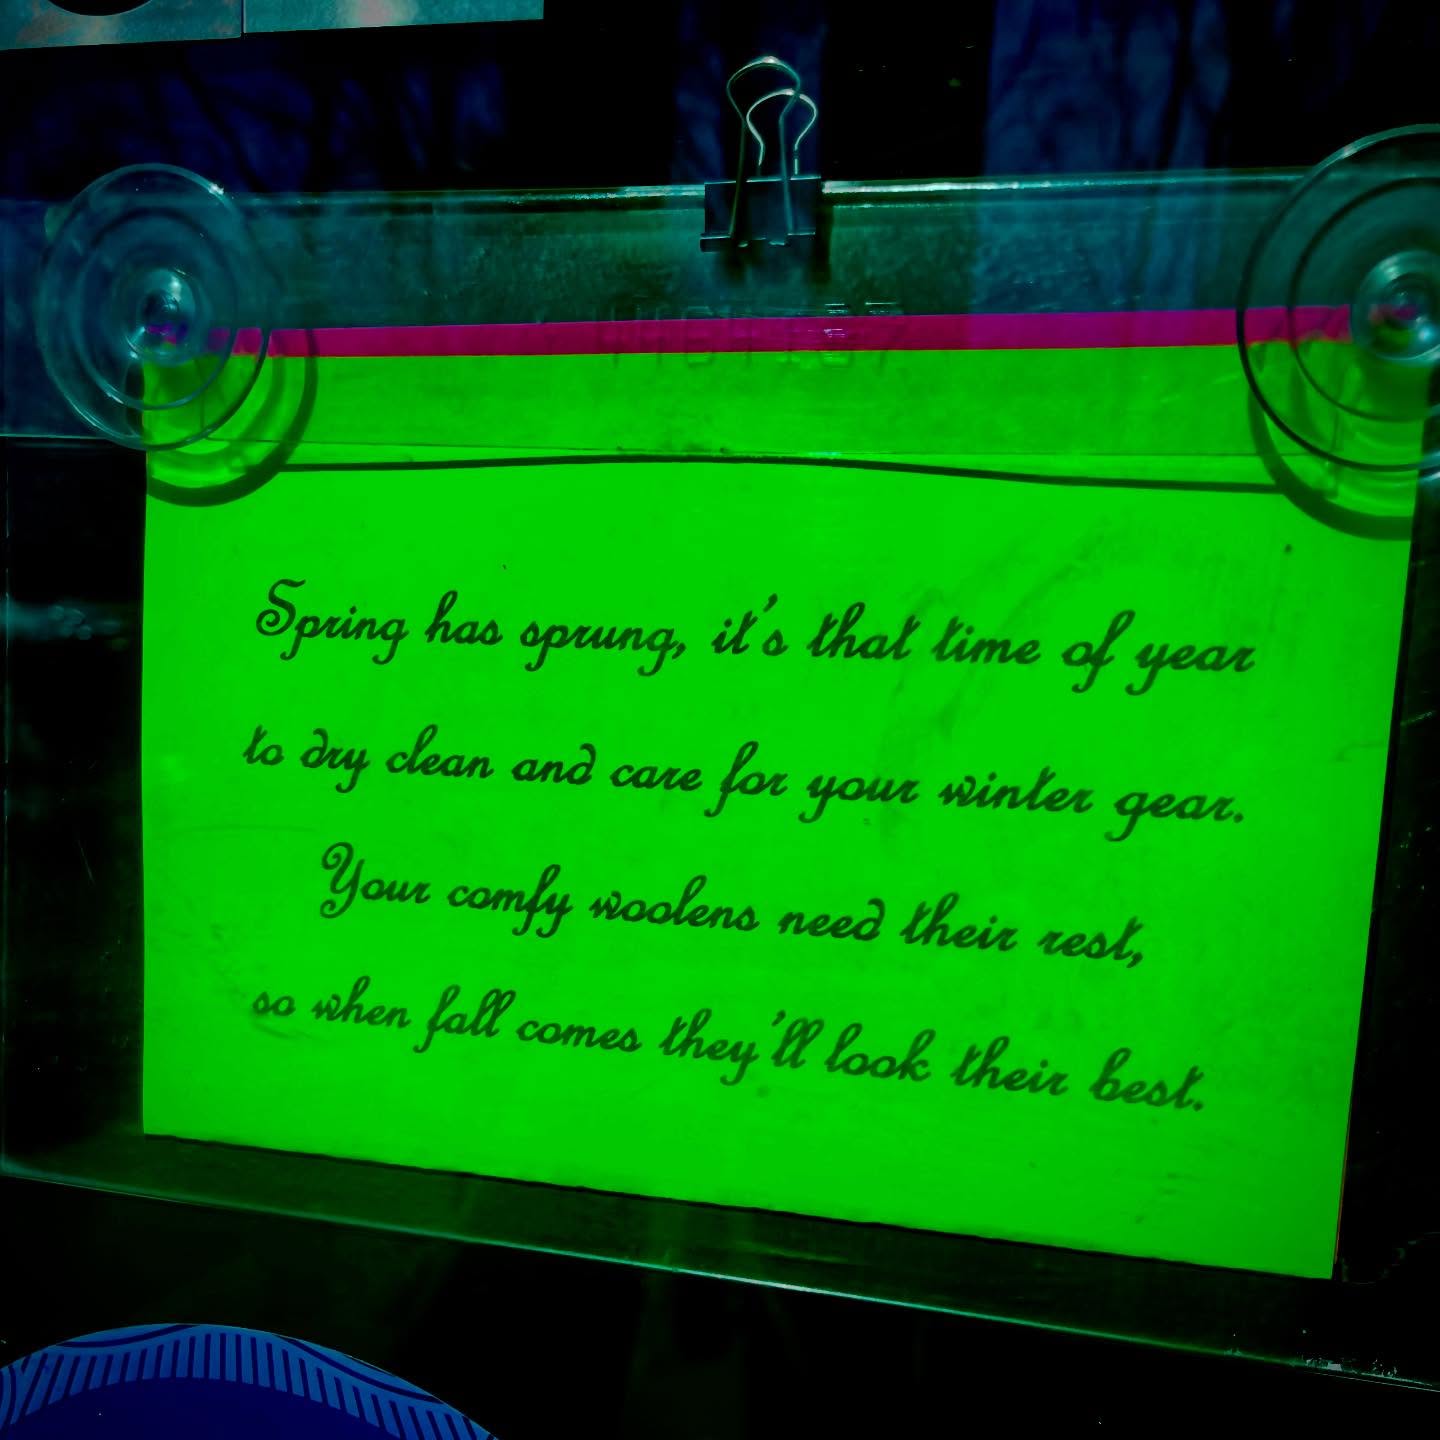 Spring has sprung, it's that time of year
to dry clean and care for your winter gear.
Your comfy woolens need their rest,
so when fall comes they'll look their best.